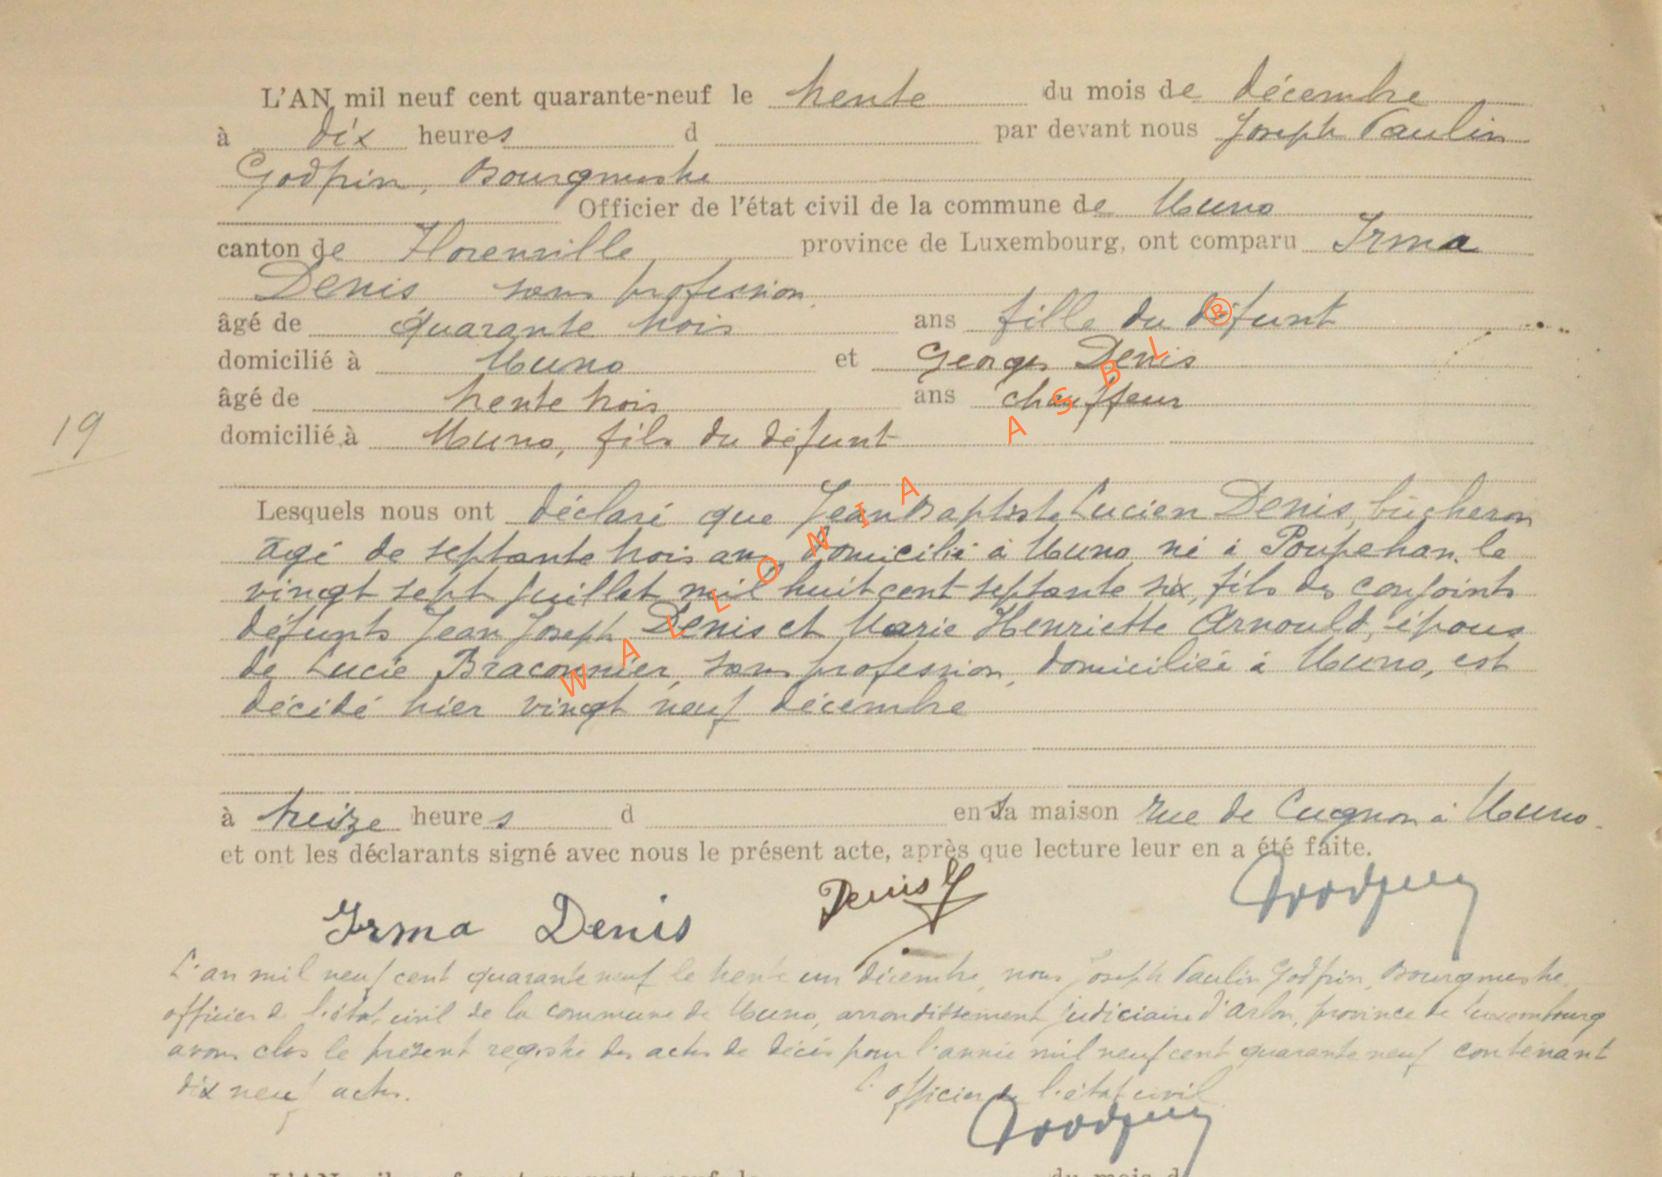 L'AN mil neuf cent quarante-neuf le trente du mois de décembre
à dix heures d par devant nous Joseph Paulin
Godfrin, Bourgmestre
Officier de l'état civil de la commune de Muno
canton de Florenville province de Luxembourg, ont comparu Irma
Denis sans profession
âgé de quarante trois ans fille du défunt
domicilié à Muno et Georges Denis
âgé de trente trois ans chauffeur
domicilié à Muno, fils du défunt
19
Lesquels nous ont déclaré que Jean Baptiste Lucien Denis, bûcheron
âgé de septante trois ans, domicilié à Muno, né à Poupehan, le
vingt sept juillet mil huit cent septante six, fils des conjoints
défunts Jean Joseph Denis et Marie Henriette Arnould, époux
de Lucie Braconnier, sans profession, domiciliée à Muno, est
décédé hier vingt neuf décembre
à treize heures d en sa maison rue de Cugnon à Muno.
et ont les déclarants signé avec nous le présent acte, après que lecture leur en a été faite.
Irma Denis Denis G Godfrin
L'an mil neuf cent quarante neuf le trente un décembre, nous Joseph Paulin Godfrin, Bourgmestre,
officier de l'état civil de la commune de Muno, arrondissement judiciaire d'Arlon, province de Luxembourg
avons clos le présent registre des actes de décès pour l'année mil neuf cent quarante neuf contenant
dix neuf actes. L'officier de l'état civil
Godfrin
L'AN mil neuf cent quarante-neuf le du mois d
WALLONIA ASBL ®